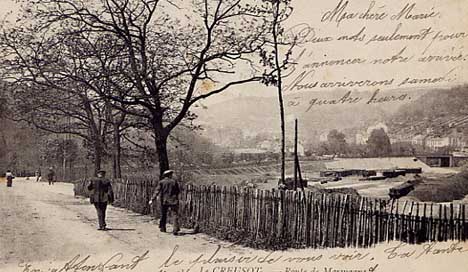 Ma chère Marie.
Deux mots seulement pour
t'annoncer notre arrivée.
Nous arriverons samedi
à quatre heures.
En attendant le plaisir de vous voir. Ta tante
Le CREUSOT Route de